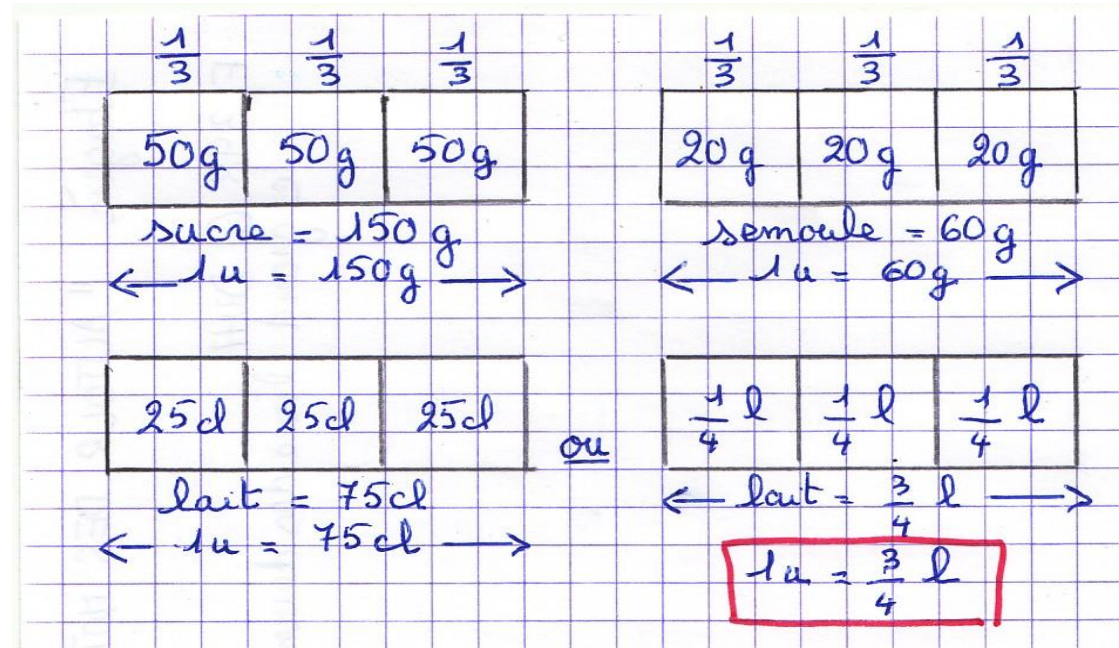 1/3 1/3 1/3
50g 50g 50g
sucre = 150 g
← 1u = 150g →
1/3 1/3 1/3
20 g 20 g 20 g
semoule = 60g
← 1u = 60g →
25cl 25cl 25cl
lait = 75cl
← 1u = 75cl →
ou
1/4 l 1/4 l 1/4 l
← lait = 3/4 l →
1u = 3/4 l